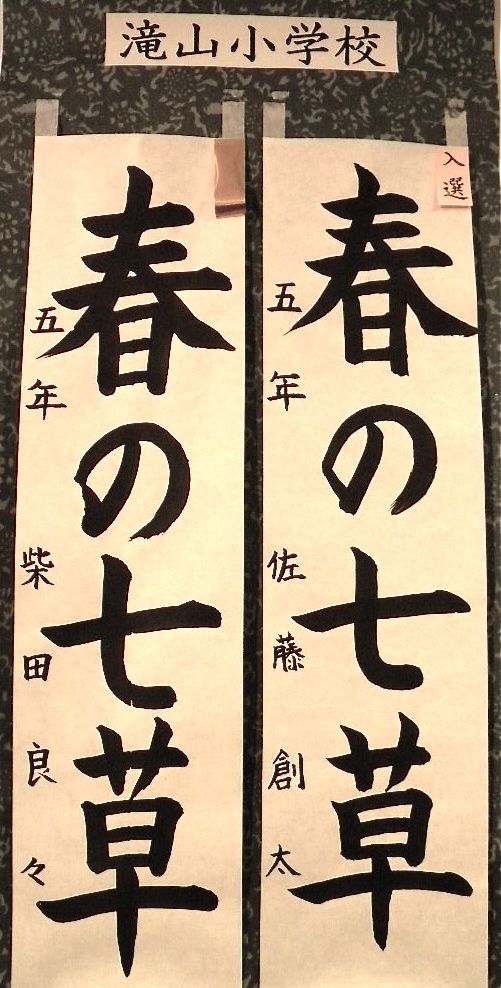 滝山小学校
入選
春の七草
五年 佐藤創太
春の七草
五年 柴田良々